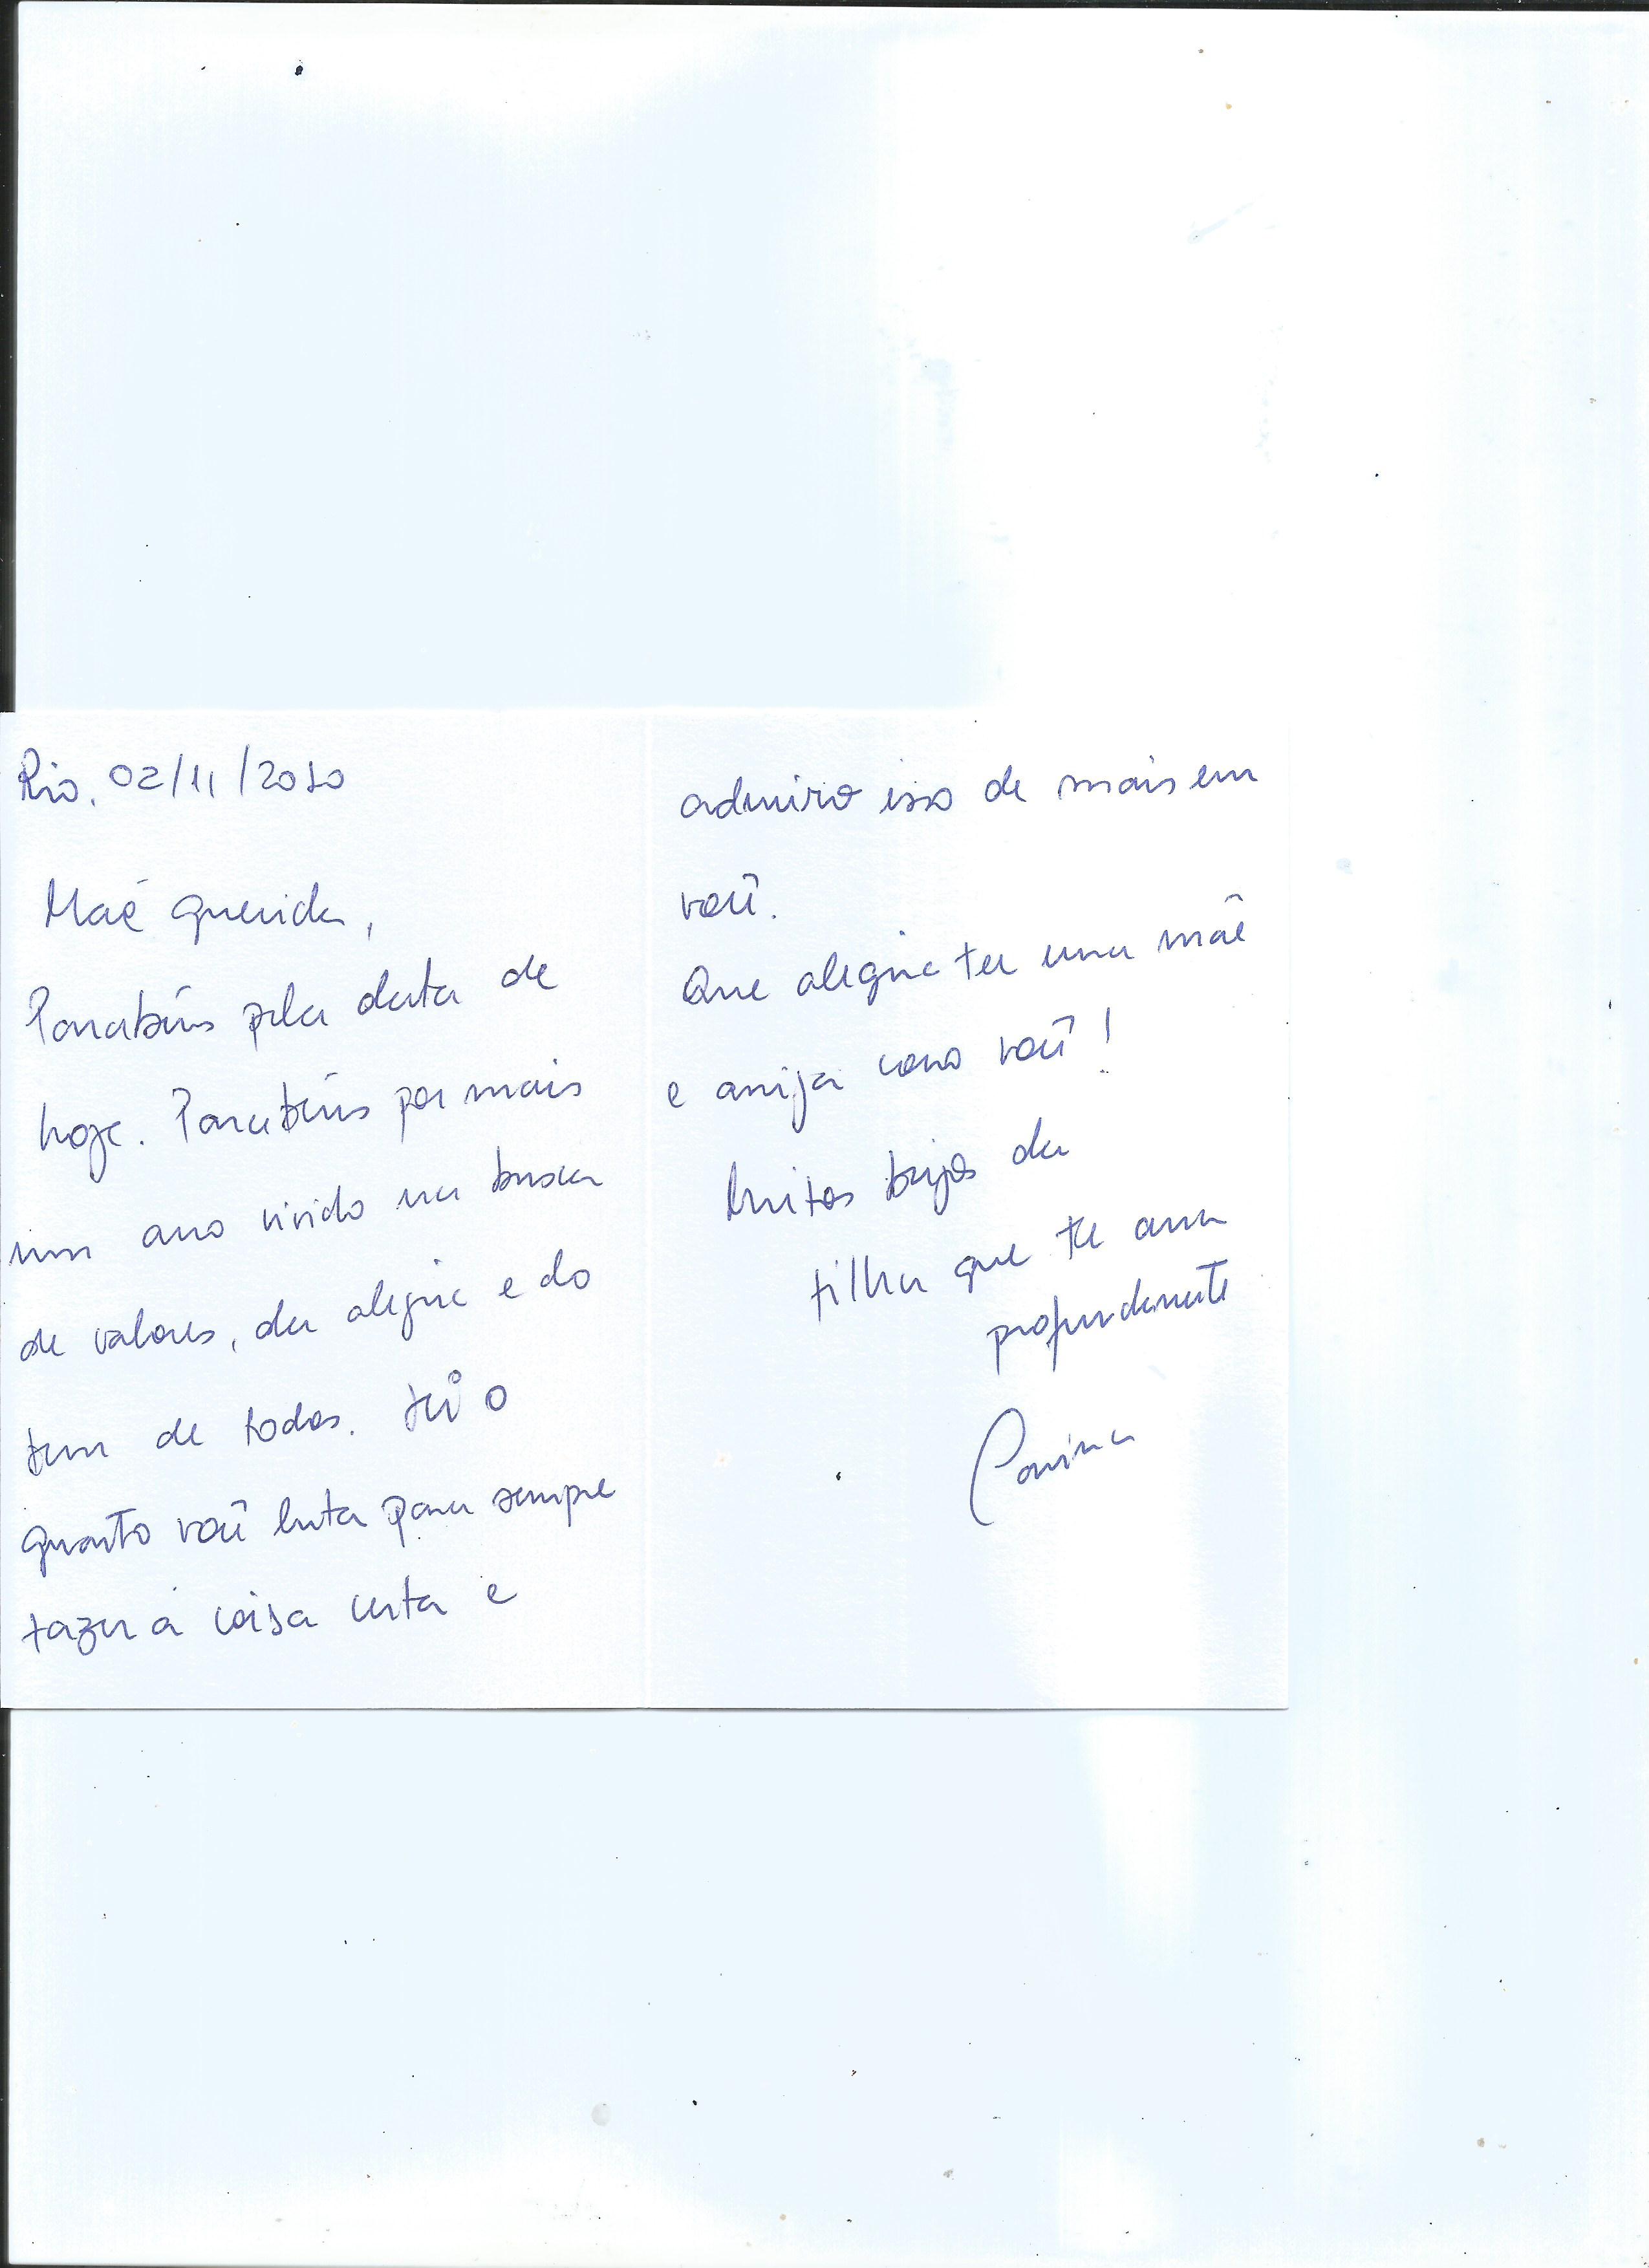 Rio, 02/11/2010
Mãe querida,
Parabéns pela data de
hoje. Parabéns por mais
um ano vivido na busca
de valores, da alegria e do
bem de todos. Sei o
quanto você luta para sempre
fazer a coisa certa e
admiro isso de mais em
você.
Que alegria ter uma mãe
e amiga como você!
Muitos beijos da
filha que te ama
profundamente